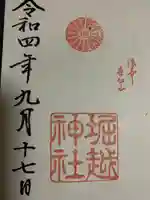 令和四年九月十七日
堀越
神社